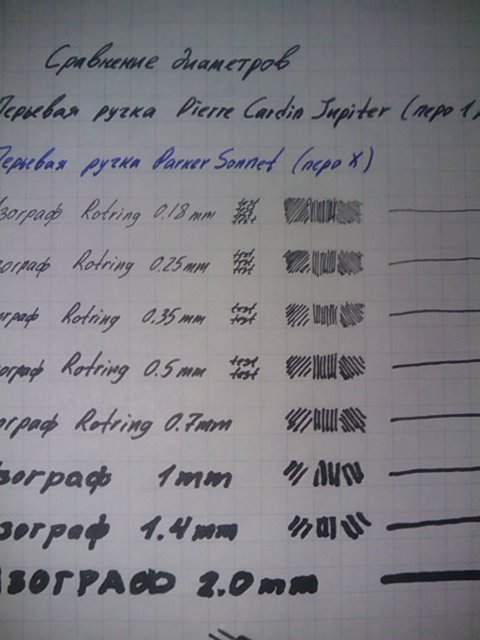 Сравнение диаметров
Перьевая ручка Pierre Cardin Jupiter (перо 1)
Перьевая ручка Parker Sonnet (перо X)
зограф Rotring 0.18 mm test test test
зограф Rotring 0.25mm test test test
ограф Rotring 0.35 mm test test
ограф Rotring 0.5 mm test test
ограф Rotring 0.7mm
зограф 1mm
зограф 1.4 mm
ИЗОГРАФ 2.0 mm